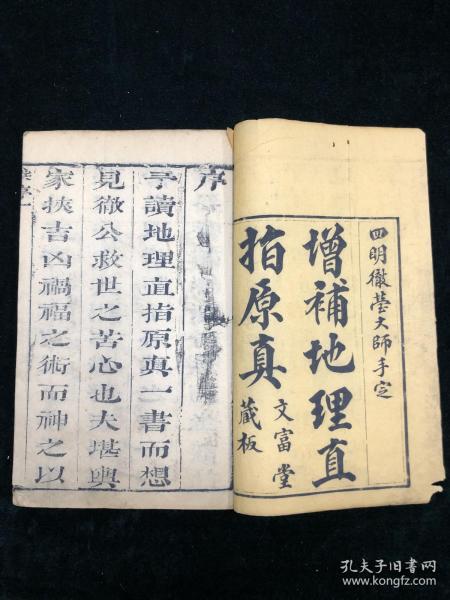 四明徹瑩大師手定
增補地理直
指原真
文富堂
藏板
序
予讀地理直指原真一書而想
見徹公救世之苦心也夫堪輿
家挾吉凶禍福之術而神之以
孔夫子旧书网
www.kongfz.com